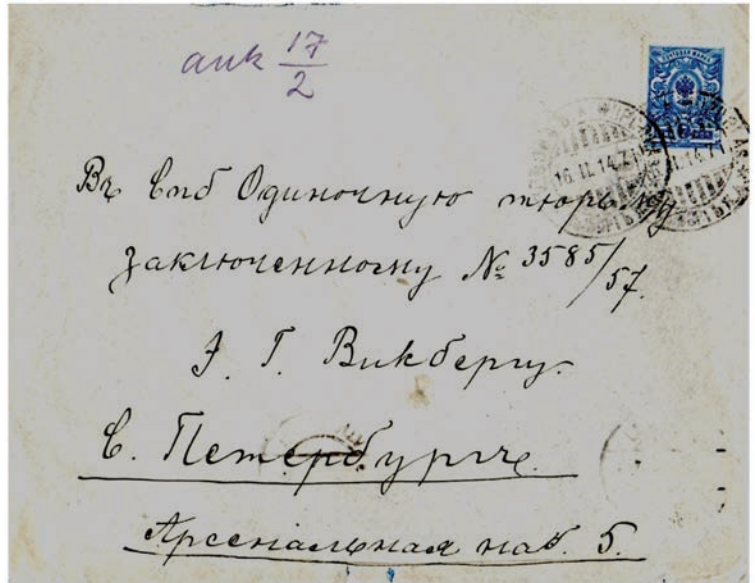 апк 17/2
Въ Спб Одиночную тюрьму
заключенному № 3585/57.
Э. Г. Викбергу.
С. Петербургъ.
Арсенальная наб. 5.
16.II.14.